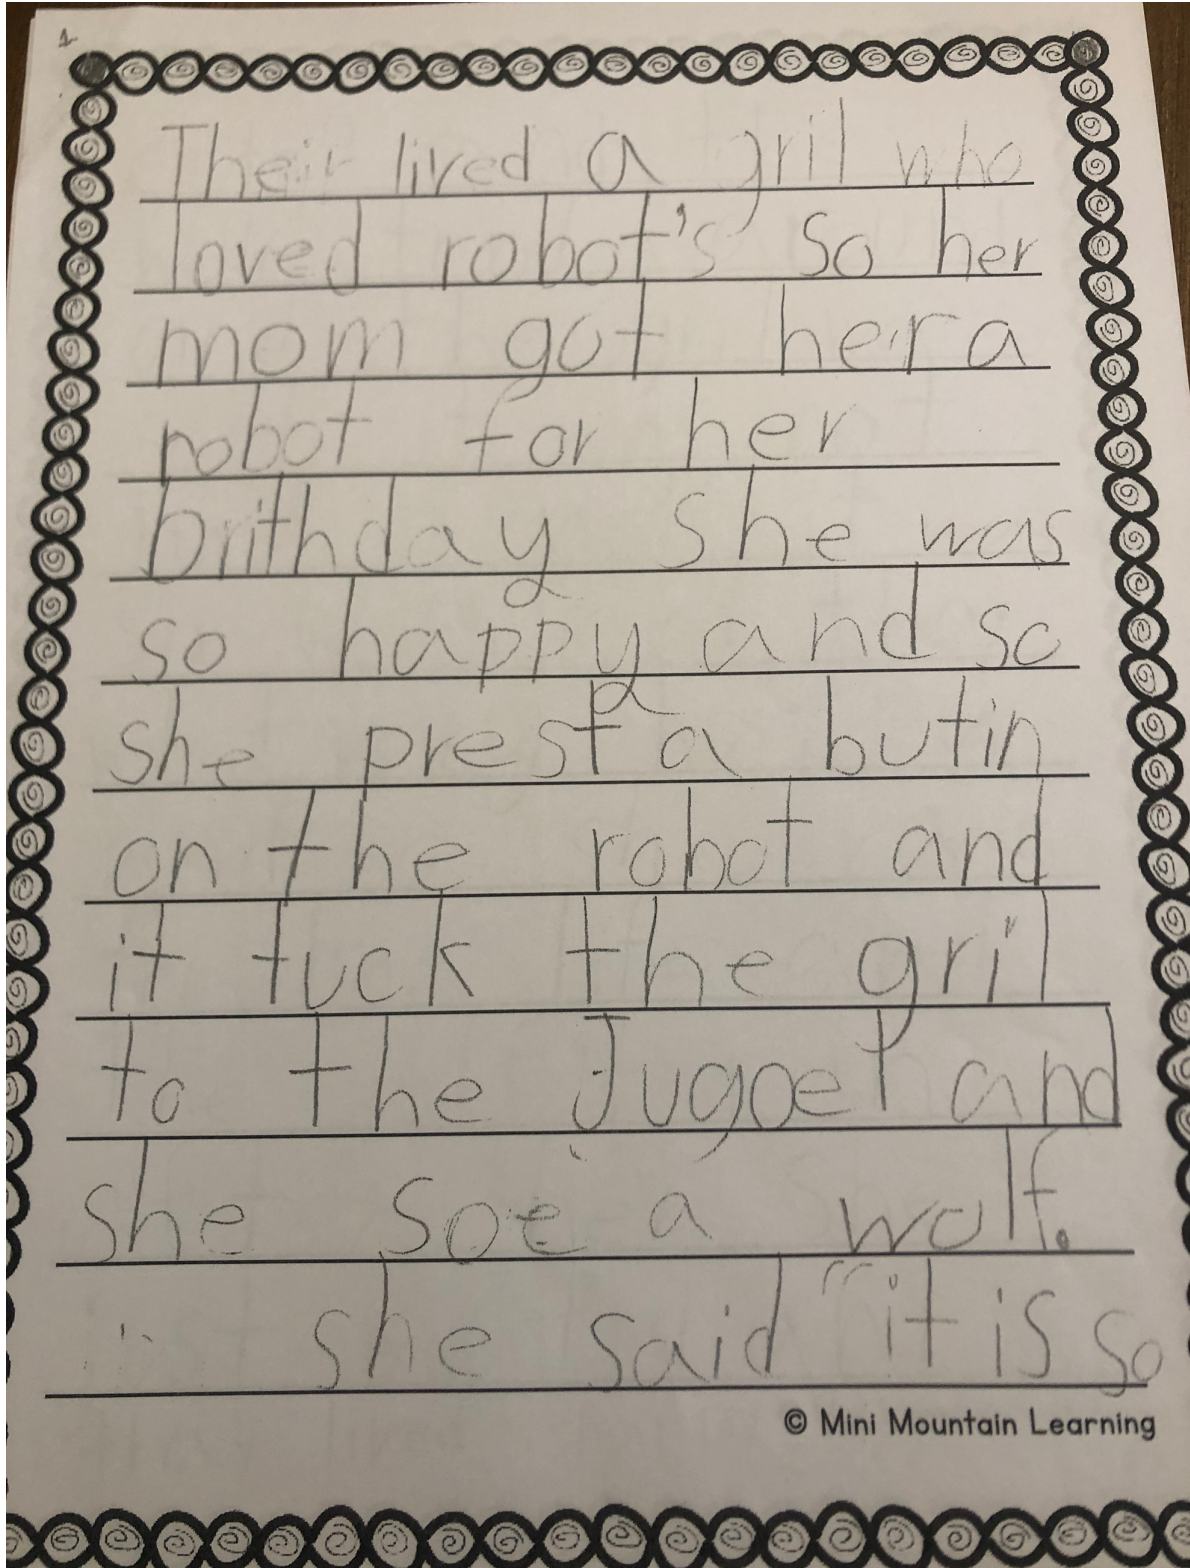 1
Their lived a gril who
loved robot's so her
mom got her a
robot for her
brithday she was
so happy and so
she prest a butin
on the robot and
it tuck the gril
to the Jugoel and
she soe a wolf.
she said "it is so
© Mini Mountain Learning